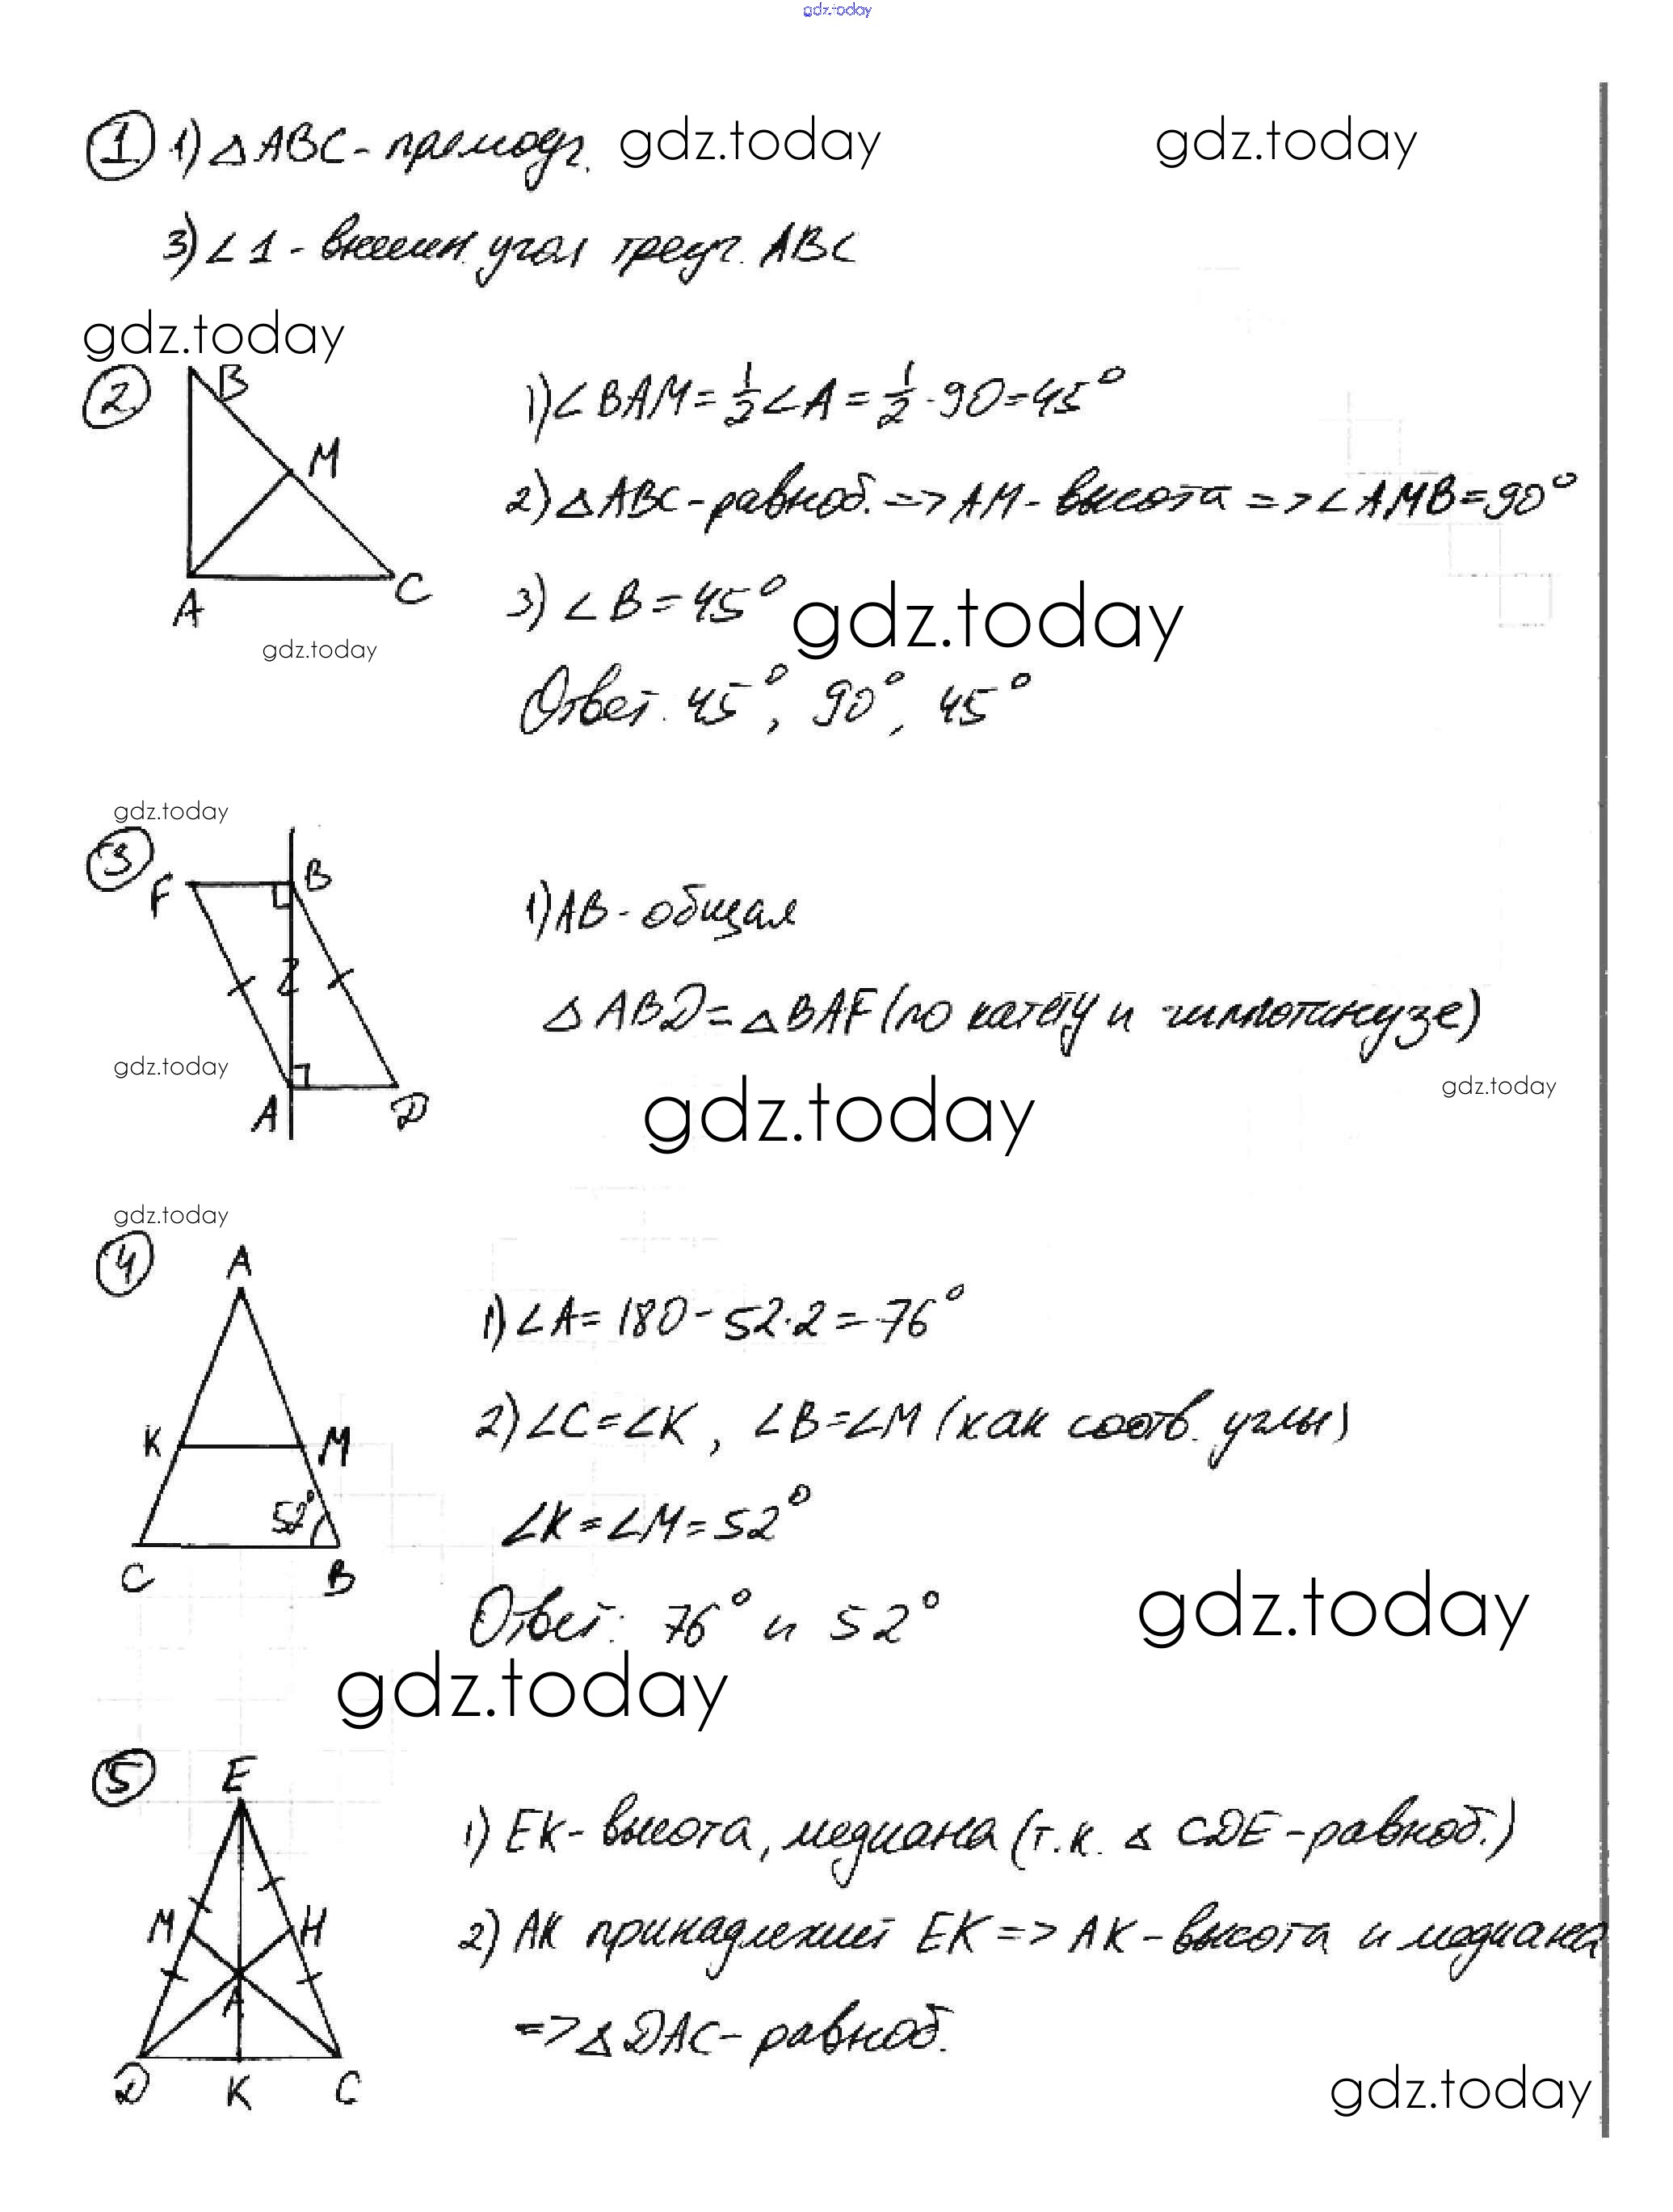 gdz.today
① 1) △ABC - прямоуг. gdz.today gdz.today
3) ∠1 - внешн. угол треуг. ABC
gdz.today
② B
M
A C
gdz.today
1) ∠BAM = 1/2 ∠A = 1/2 · 90 = 45°
2) △ABC - равноб. => AM - высота => ∠AMB = 90°
3) ∠B = 45° gdz.today
Ответ: 45°, 90°, 45°
gdz.today
③ F B
Z
gdz.today
A D
1) AB - общая
△ABD = △BAF (по катету и гиппотинузе)
gdz.today gdz.today
gdz.today
④ A
K M
52°
C B
1) ∠A = 180 - 52·2 = 76°
2) ∠C = ∠K, ∠B = ∠M (как соотв. углы)
∠K = ∠M = 52°
Ответ: 76° и 52° gdz.today
gdz.today
⑤ E
M H
A
D K C
1) EK - высота, медиана (т.к. △CDE - равноб.)
2) AK принадлежит EK => AK - высота и медиана
=> △DAC - равноб.
gdz.today